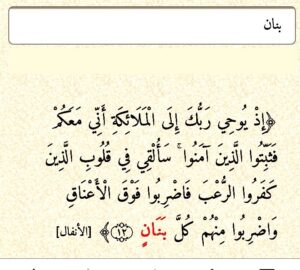 بنان
﴿إِذْ يُوحِي رَبُّكَ إِلَى الْمَلَائِكَةِ أَنِّي مَعَكُمْ
فَثَبِّتُوا الَّذِينَ آمَنُوا ۚ سَأُلْقِي فِي قُلُوبِ الَّذِينَ
كَفَرُوا الرُّعْبَ فَاضْرِبُوا فَوْقَ الْأَعْنَاقِ
وَاضْرِبُوا مِنْهُمْ كُلَّ بَنَانٍ ﴿١٢﴾﴾ [الأنفال]